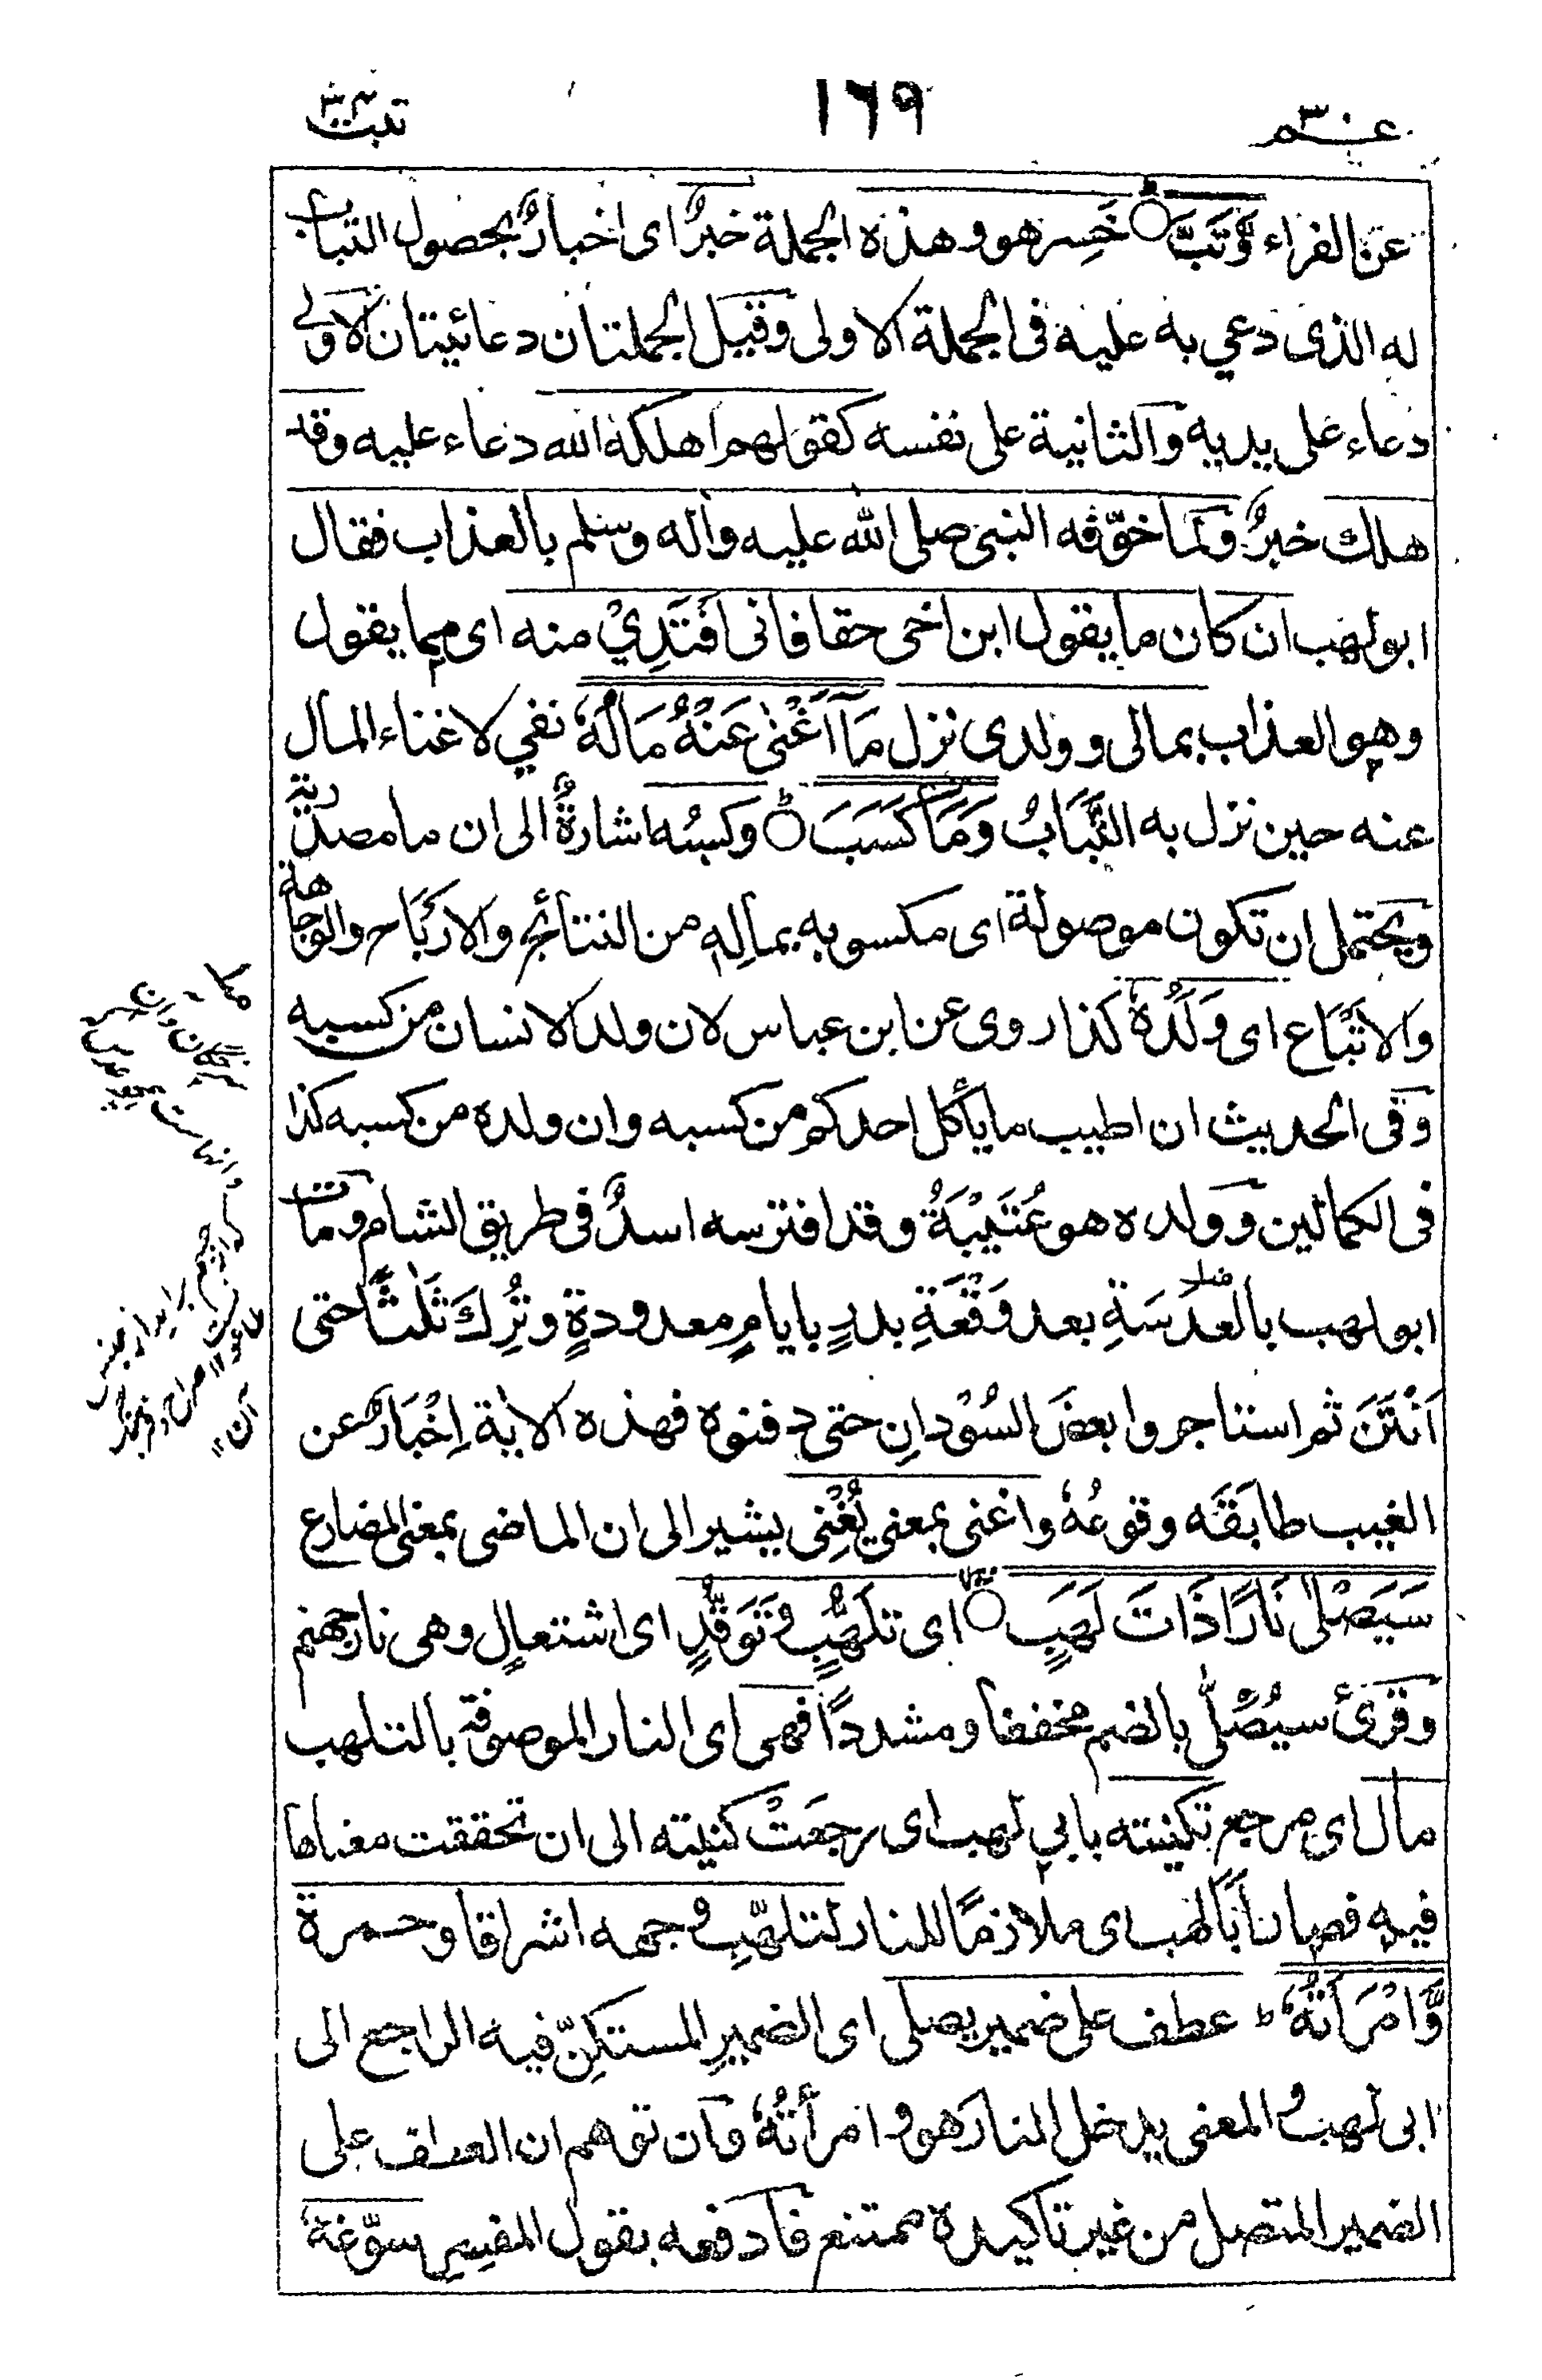 عم ٣٠
١٦٩
تبت
عن الفراء وَّتَبَّ خَسِر هو وهذه الجملة خبرٌ اى اخبارٌ بحصول التباب
له الذى دعي به عليه فى الجملة الاولى وقيل الجملتان دعائيتان الاولى
دعاء على يديه والثانية على نفسه كقولهم اهلكه الله دعاء عليه وقد
هلك خبرٌ ولما خوّفه النبى صلى الله عليه واله وسلم بالعذاب فقال
ابو لهب ان كان ما يقول ابن اخى حقا فانى اَفْتَدِيْ منه اى مما يقول
وهو العذاب بمالى وولدى نزل مَآ اَغْنٰى عَنْهُ مَالُهٗ نفي لاغناء المال
عنه حين نزل به التَّبَابُ وَمَا كَسَبَ وكسبُه اشارةٌ الى ان ما مصدرية
ويحتمل ان تكون موصولة اى مكسوبه بمالِه من النتائج والارْبَاح والوجاهة
والاتْبَاع اى وَلَدُهٗ كذا روى عن ابن عباس لان ولد الانسان من كسبه
وفى الحديث ان اطيب ما يأكل احدكم من كسبه وان ولده من كسبه كذا
فى الكمالين وولده هو عُتَيْبَةُ وقد افترسه اسدٌ فى طريق الشام ومات
ابو لهب بالعَدَسَةِ بعد وَقْعَةِ بدرٍ بايامٍ معدودةٍ وتُرِكَ ثَلٰثًا حتى
اَنْتَنَ ثم استاجروا بعضَ السُوْدانِ حتى دفنوه فهذه الاية اِخْبَارٌ عن
الغيب طابَقَه وقوعُهٗ واغنى بمعنى يُغْنِى يشير الى ان الماضى بمعنى المضارع
سَيَصْلٰى نَارًا ذَاتَ لَهَبٍ اى تلهُّبٍ وتَوَقُّدٍ اى اشتعالٍ وهى نار جهنم
وقرئ سيُصْلّٰى بالضم مخففا ومشددًا فهى اى النار الموصوفة بالتلهب
مأل اى مرجع تكنيته بابي لهب اى رجعَتْ كنيته الى ان تحققت معناها
فيه فصار اَبَا لهب اى ملازمًا للنار لتلهّبِ وجهه اشراقا وحمرة
وَّامْرَاَتُهٗ ط عطف على ضمير يصلى اى الضميرِ المستكنِّ فيه الراجع الى
ابى لهب والمعنى يدخل النار هو وامرأتُهٗ وان توهم ان العطف على
الضمير المتصل من غير تاكيده ممتنع فادفعه بقول المفسِر سوّغهٗ